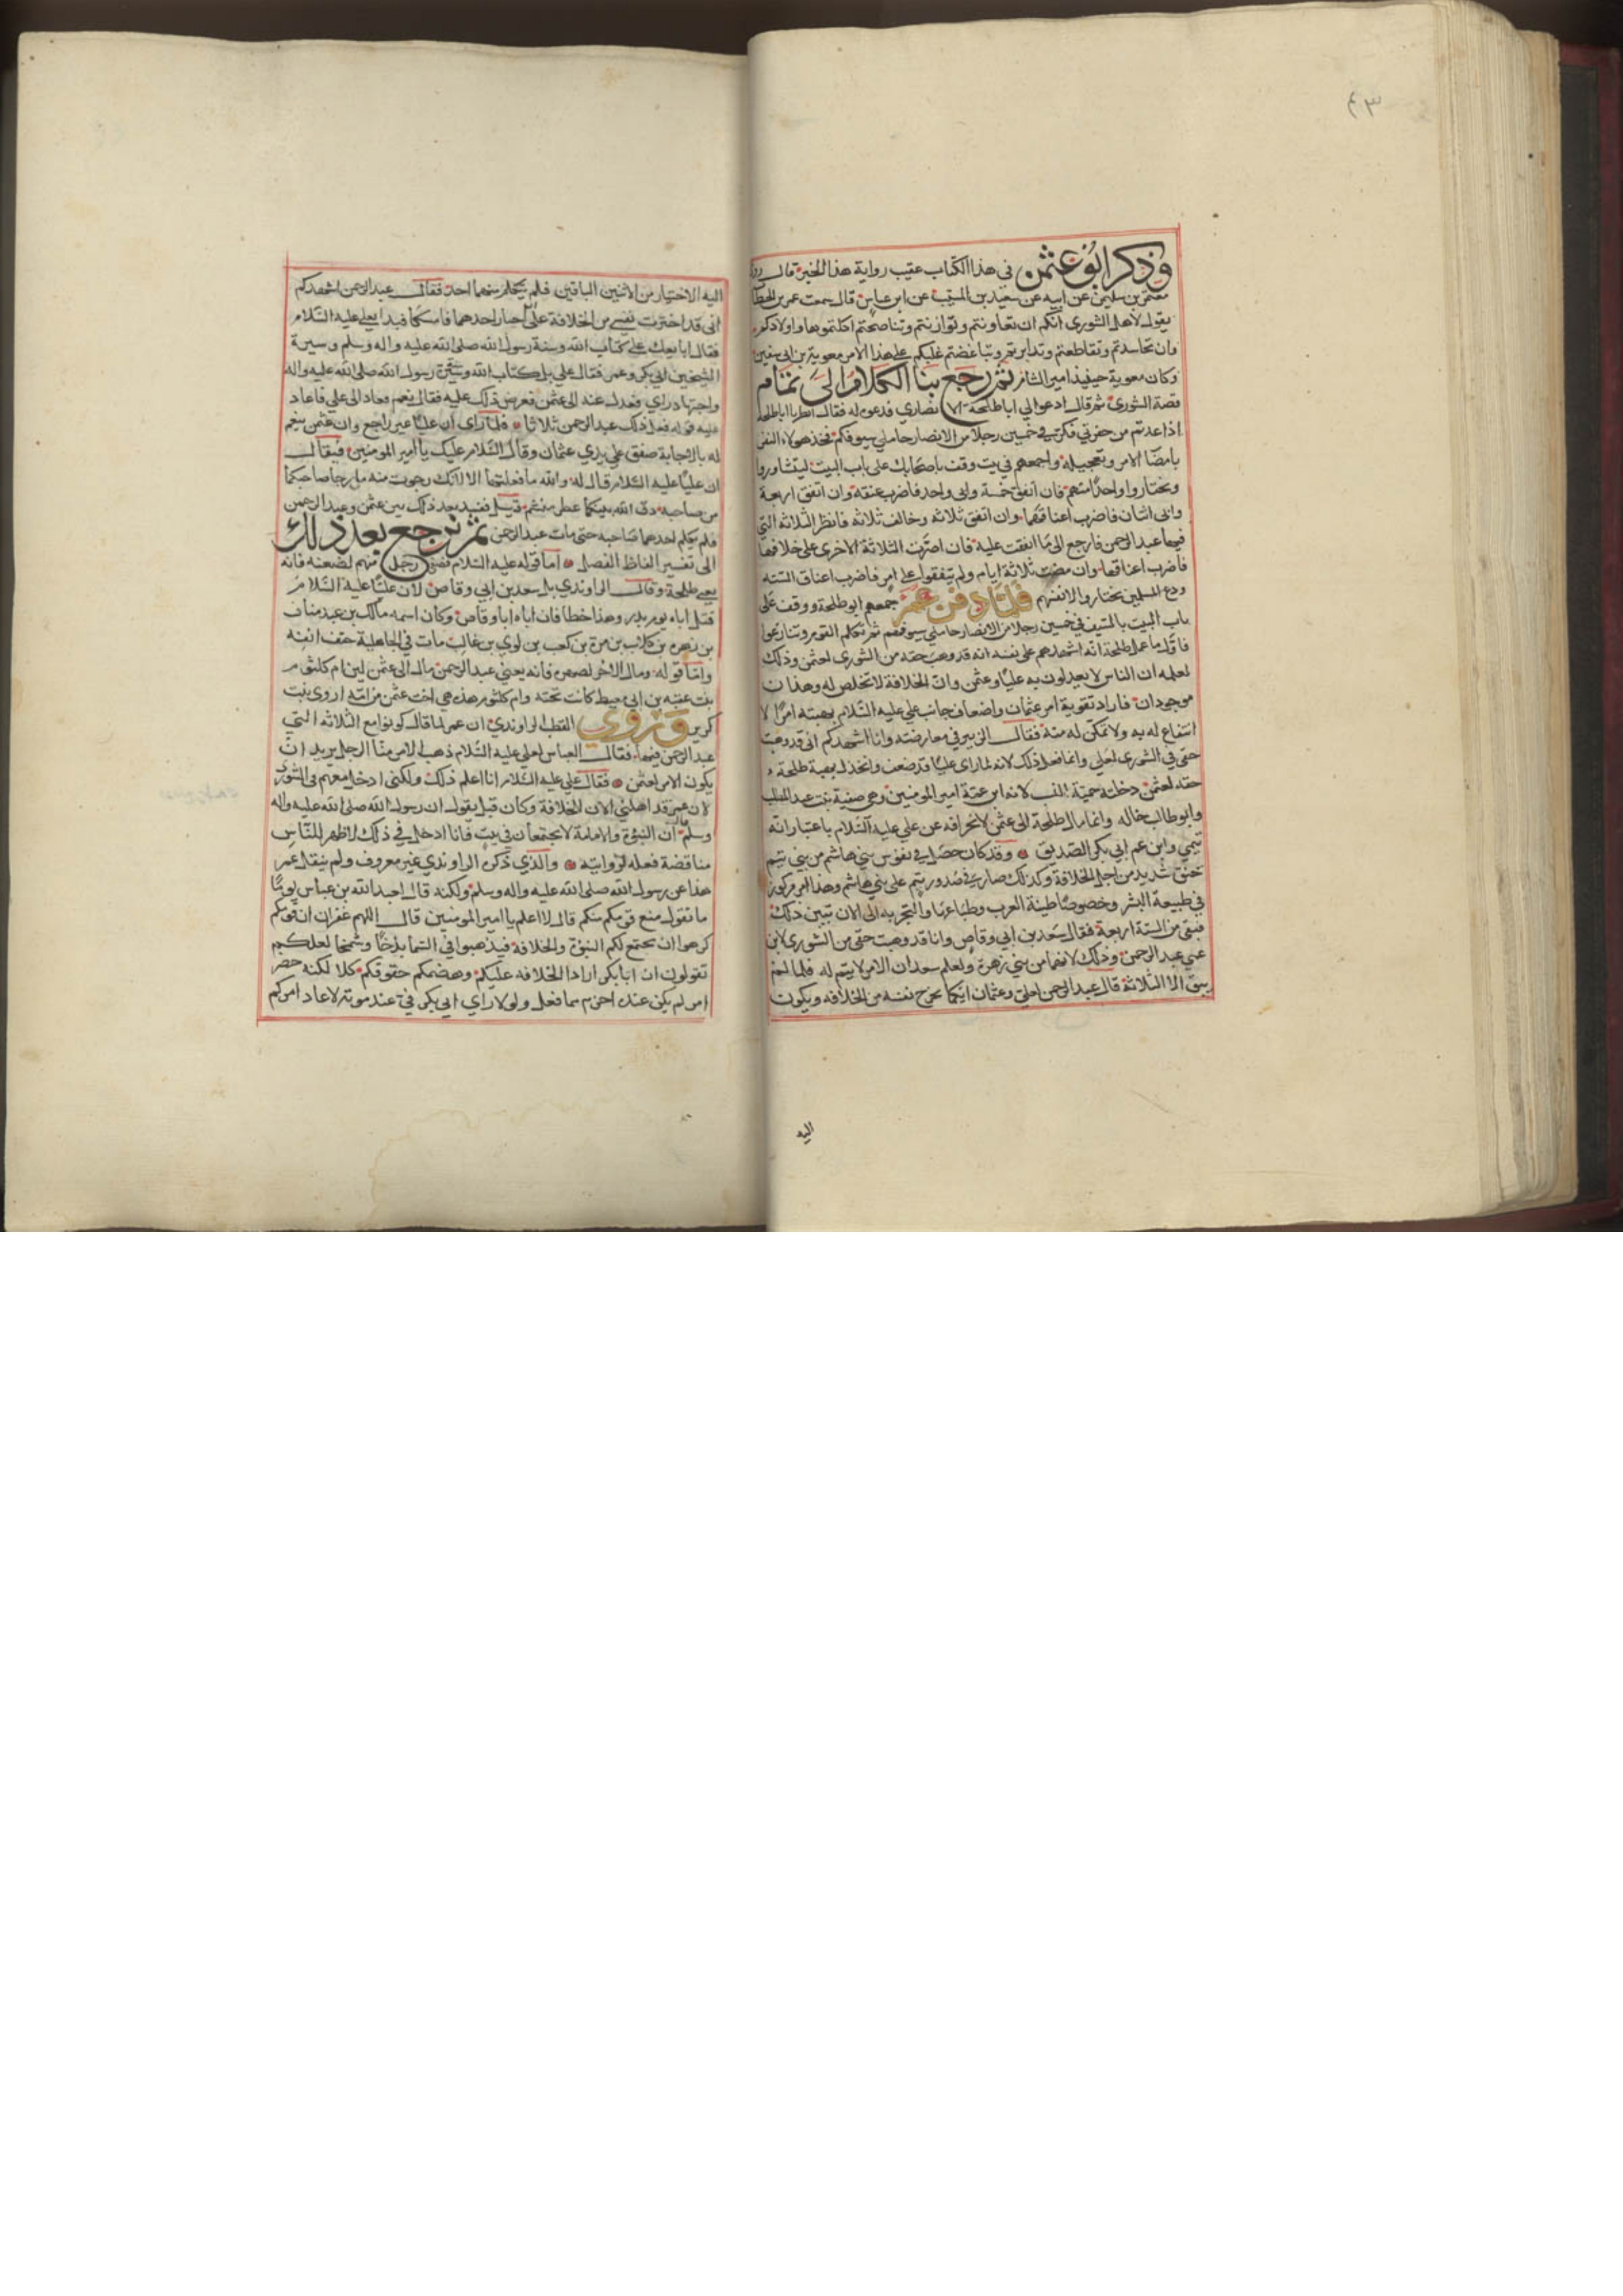 ٤٣
وذكر ابو عثمن في هذا الكتاب عقيب رواية هذا الخبر قال روى
معتمر بن سليمن عن ابيه عن سعيد بن المسيب عن ابن عباس قال سمعت عمر بن الخطا
يقول لاهل الشورى انكم ان تعاونتم وتوازنتم وتناصحتم اكلتموها واولادكم
وان تحاسدتم وتقاطعتم وتدابرتم وتباغضتم غلبكم على هذا الامر معوية بن ابي سفين
وكان معوية حينيذ امير الشام ثم رجع بنا الكلام الى تمام
قصة الشورى ثم قال ادعوا لي اباطلحة الانصاري فدعى له فقال انظر يا اباطلحة
اذا عدتم من حفرتي فكن في خمسين رجلا من الانصار حاملي سيوفكم فخذ هولاء النفر
بامضا الامر وتعجيله واجمعهم في بيت وقف باصحابك على باب البيت ليتشاوروا
ويختاروا واحدا منهم فان اتفق خمسة وابى واحد فاضرب عنقه وان اتفق اربعة
وابى اثنان فاضرب اعناقهما وان اتفق ثلاثة وخالف ثلاثة فانظر الثلاثة التي
فيها عبد الرحمن فارجع الى ما اتفقت عليه فان اصرت الثلاثة الاخرى على خلافها
فاضرب اعناقها وان مضت ثلاثة ايام ولم يتفقوا على امر فاضرب اعناق الستة
ودع المسلمين يختاروا لانفسهم فلما دفن عمر جمعهم ابو طلحة ووقف على
باب البيت بالسيف في خمسين رجلا من الانصار حاملي سيوفهم ثم تكلم القوم وتنازعوا
فاول ما عمل طلحة انه اشهدهم على نفسه انه قد وهب حقه من الشورى لعثمن وذلك
لعلمه ان الناس لا يعدلون به عليا وعثمن وان الخلافة لا تخلص له وهذان
موجودان فاراد تقوية امر عثمان واضعاف جانب علي عليه السلام بهبته امرا لا
انتفاع له به ولا تمكن له منه فقال الزبير في معارضته وانا اشهدكم اني قد وهبت
حقي في الشورى لعلي وانما فعل ذلك لانه لما راى عليا قد ضعف وانخذل بهبة طلحة
حقه لعثمن دخلته حمية النسب لانه ابن عمة امير المومنين وهي صفية بنت عبد المطلب
وابو طالب خاله وانما مال طلحة الى عثمن لانحرافه عن علي عليه السلام باعتبار انه
تيمي وابن عم ابي بكر الصديق وقد كان حصل في نفوس بني هاشم من بني تيم
حنق شديد من اجل الخلافة وكذلك صار في صدور تيم على بني هاشم وهذا امر مركوز
في طبيعة البشر وخصوصا طينة العرب وطباعها والتجربة الى الان تبين ذلك
فبقي من الستة اربعة فقال سعد بن ابي وقاص وانا قد وهبت حقي من الشورى لابن
عمي عبد الرحمن وذلك لانهما من بني زهرة ولعلم سعد ان الامر لا يتم له فلما لم
يبق الا الثلاثة قال عبد الرحمن لعلي وعثمان ايكما يخرج نفسه من الخلافة ويكون
اليه
اليه الاختيار من الاثنين الباقين فلم يتكلم منهما احد فقال عبد الرحمن اشهدكم
انى قد اخترت نفسي من الخلافة على ان اختار احدهما فامسكا فبدا بعلي عليه السلام
فقال ابايعك على كتاب الله وسنة رسول الله صلى الله عليه واله وسلم وسيرة
الشيخين ابي بكر وعمر فقال علي بل كتاب الله وسنة رسول الله صلى الله عليه واله
واجتهاد راي فعدل عنه الى عثمن فعرض ذلك عليه فقال نعم فعاد الى علي فاعاد
عليه قوله فعل ذلك عبد الرحمن ثلاثا فلما راى ان عليا غير راجع وان عثمن ينعم
له بالاجابة صفق على يدي عثمان وقال السلام عليك يا امير المومنين فيقال
ان عليا عليه السلام قال له والله ما فعلتها الا لانك رجوت منه ما رجا صاحبكما
من صاحبه دق الله بينكما عطر منشم قيل ففسد بعد ذلك بين عثمن وعبد الرحمن
فلم يكلم احدهما صاحبه حتى مات عبد الرحمن ثم نرجع بعد ذلك
الى تفسير الفاظ الفصل اما قوله عليه السلام فصغى رجل منهم لضغنه فانه
يعني طلحة وقال الراوندي بل سعد بن ابي وقاص لان عليا عليه السلام
قتل اباه يوم بدر وهذا خطا فان اباه ابا وقاص وكان اسمه مالك بن عبد مناف
بن زهره بن كلاب بن مرة بن كعب بن لوي بن غالب مات في الجاهلية حتف انفه
واما قوله ومال الاخر لصهره فانه يعني عبد الرحمن مال الى عثمن لان ام كلثوم
بنت عقبه بن ابي معيط كانت تحته وام كلثوم هذه هي اخت عثمن من امه اروى بنت
كريز وروي القطب الراوندي ان عمر لما قال كونوا مع الثلاثه التي
عبد الرحمن فيها فقال العباس لعلي عليه السلام ذهب الامر منا الرجل يريد ان
يكون الامر لعثمن فقال علي عليه السلام انا اعلم ذلك ولكني ادخل معهم فى الشورى
لان عمر قد اهلني الان للخلافة وكان قبل يقول ان رسول الله صلى الله عليه واله
وسلم قال ان النبوة والامامة لا يجتمعان في بيت فانا ادخل في ذلك لاظهر للناس
مناقضة فعله لروايته والذي ذكره الراوندي غير معروف ولم ينقل عمر
هذا عن رسول الله صلى الله عليه واله وسلم ولكنه قال لعبد الله بن عباس يوما
ما تقول منع قومكم منكم قال لا اعلم يا امير المومنين قال اللهم غفران ان قومكم
كرهوا ان يجتمع لكم النبوة والخلافة فيذهبوا في السما بذخا وشمخا لعلكم
تقولون ان ابابكر ارادا الخلافه عليكم وهضمكم حقوقكم كلا لكنه حضر
امر لم يكن عنده احزم مما فعل ولولا راي ابي بكر في عند موته لاعاد امركم